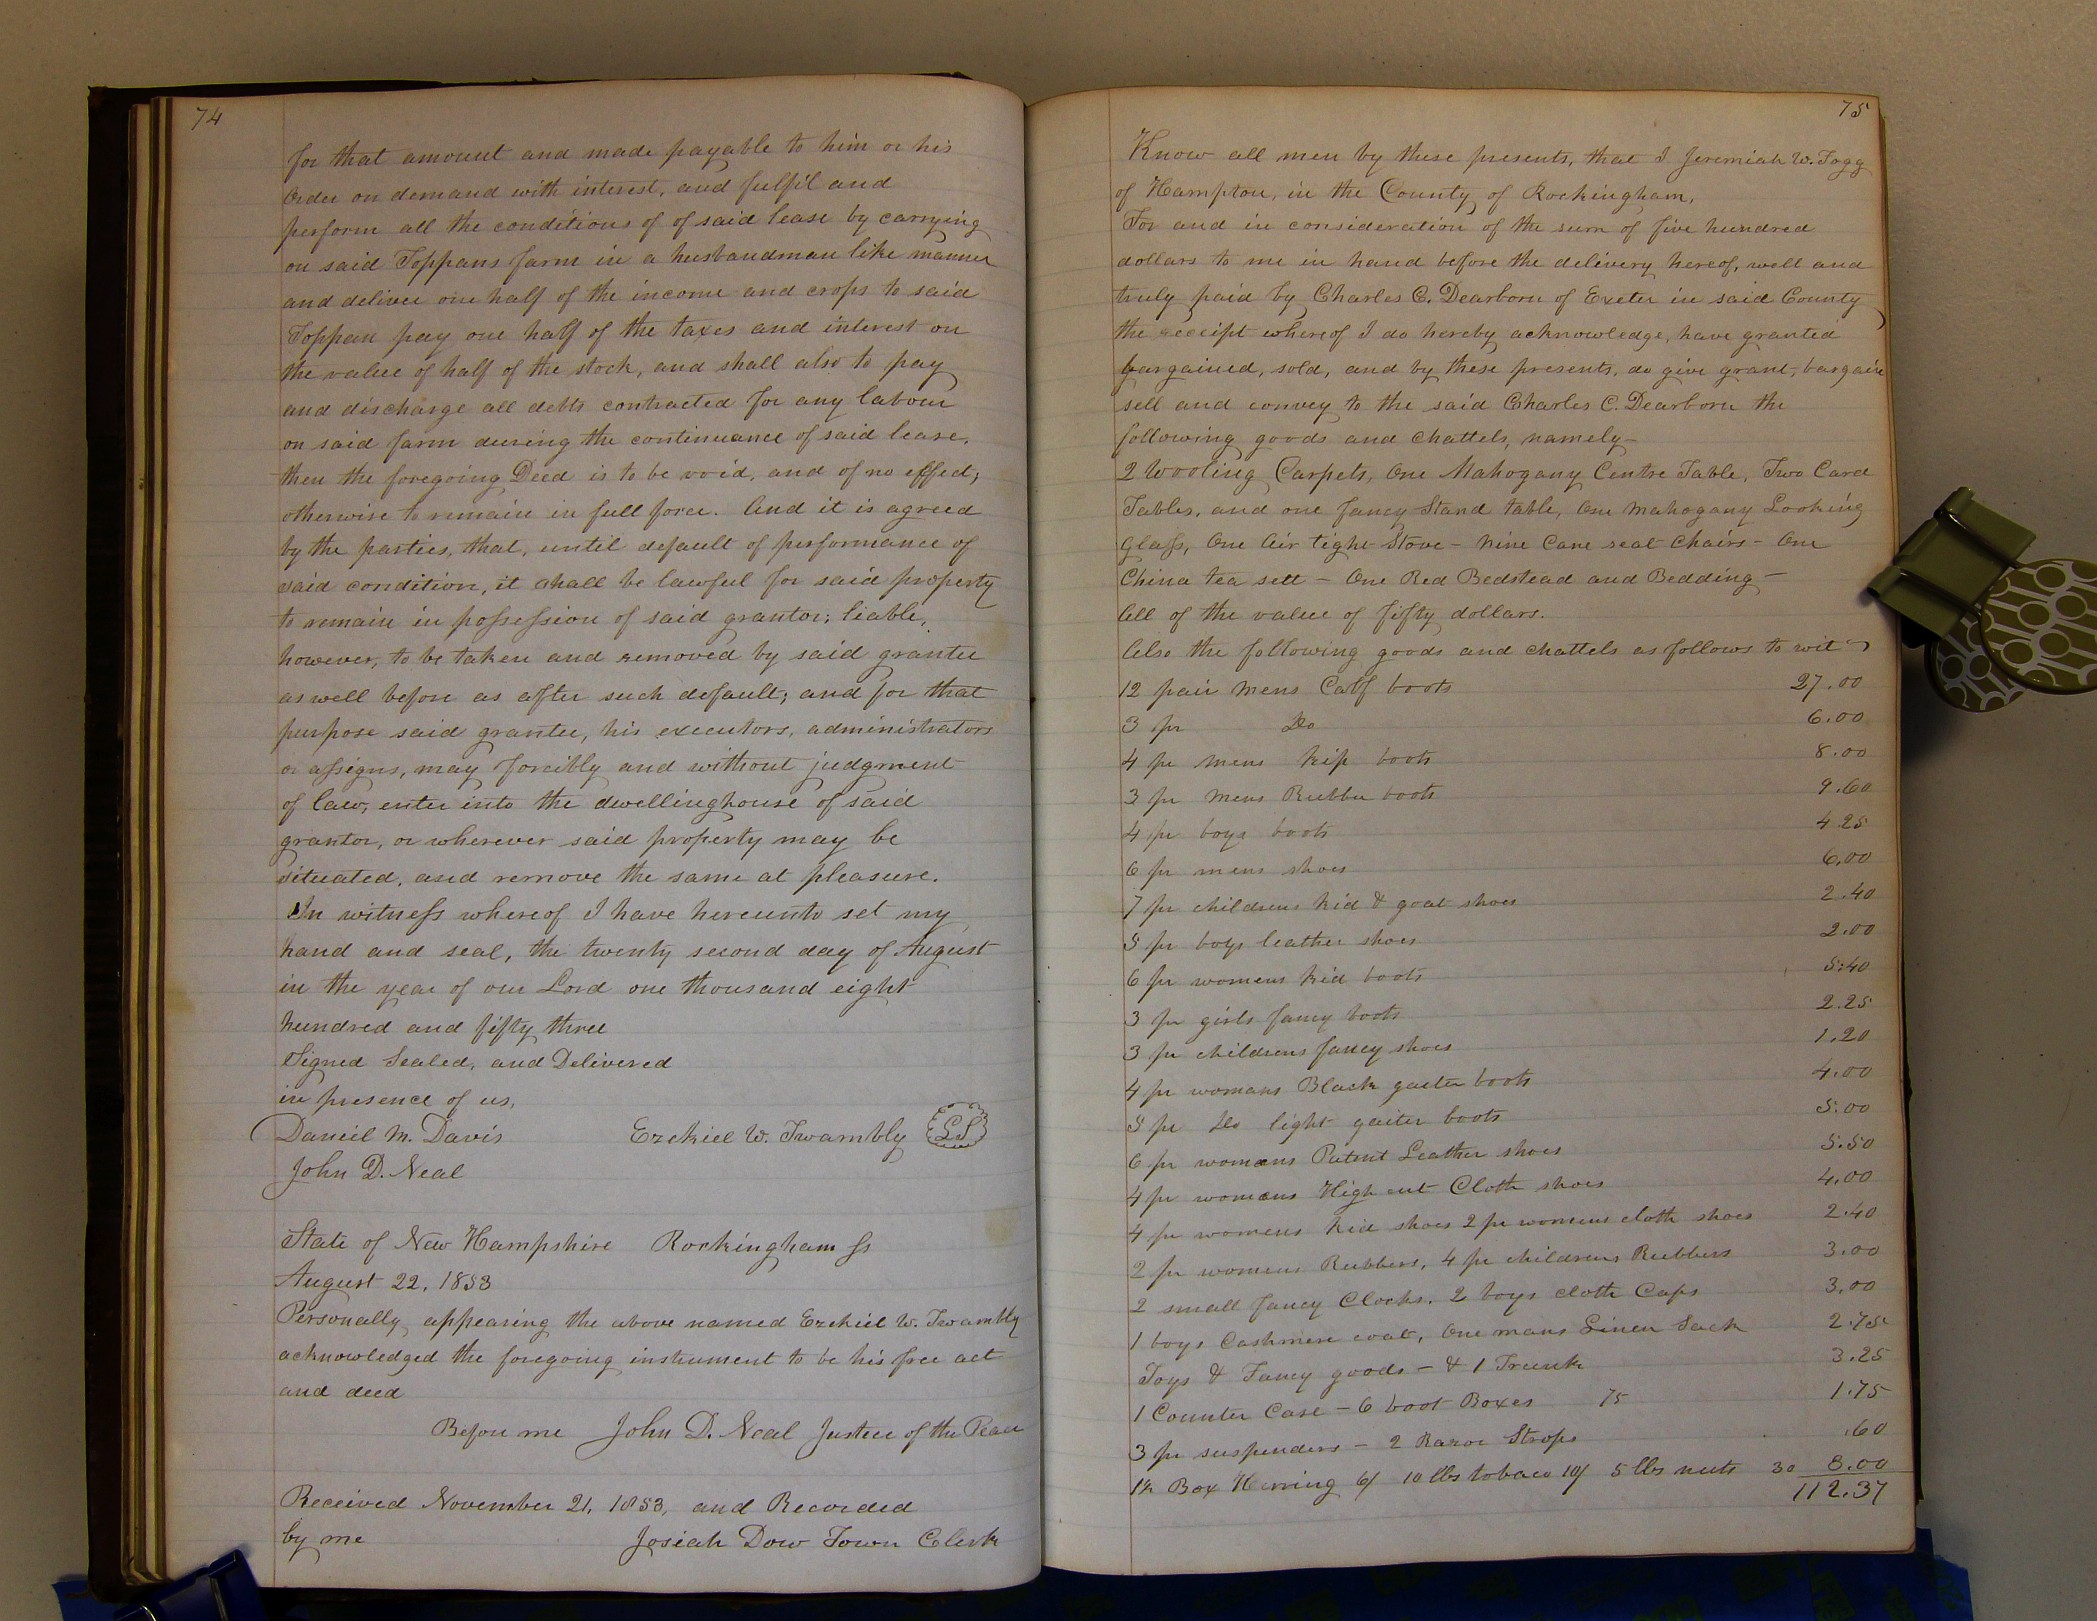 74
for that amount and made payable to him or his
order on demand with interest, and fulfil and
perform all the conditions of of said lease by carrying
on said Toppans farm in a husbandman like manner
and deliver one half of the income and crops to said
Toppan pay one half of the taxes and interest on
the value of half of the stock, and shall also to pay
and discharge all debts contracted for any labour
on said farm during the continuance of said lease,
then the foregoing Deed is to be void, and of no effect;
otherwise to remain in full force. And it is agreed
by the parties, that, until default of performance of
said condition, it shall be lawful for said property
to remain in possession of said grantor; liable,
however, to be taken and removed by said grantee
as well before as after such default; and for that
purpose said grantee, his executors, administrators
or assigns, may forcibly and without judgment
of law, enter into the dwellinghouse of said
grantor, or wherever said property may be
situated, and remove the same at pleasure.
In witness whereof I have hereunto set my
hand and seal, the twenty second day of August
in the year of our Lord one thousand eight
hundred and fifty three
Signed Sealed, and Delivered
in presence of us,
Daneil M. Davis Ezekiel W. Twambly LS
John D. Neal
State of New Hampshire Rockingham ss
August 22, 1853
Personally appearing the above named Ezekiel W. Twambly
acknowledged the foregoing instrument to be his free act
and deed
Before me John D. Neal Justice of the Peace
Received November 21, 1853, and Recorded
by me Josiah Dow Town Clerk
75
Know all men by these presents, that I Jeremiah W. Fogg
of Hampton, in the County of Rockingham,
For and in consideration of the sum of five hundred
dollars to me in hand before the delivery hereof, well and
truly paid by Charles C. Dearborn of Exeter in said County
the receipt whereof I do hereby acknowledge, have granted
bargained, sold, and by these presents, do give grant, bargain
sell and convey to the said Charles C. Dearborn the
following goods and chattels, namely-
2 Wooling Carpets, One Mahogany Centre Table, Two Card
Tables, and one fancy Stand table, One Mahogany Looking
Glass, One Air tight Stove - Nine Cane seat Chairs - One
China tea sett - One Red Bedstead and Bedding -
All of the value of fifty dollars.
Also the following goods and chattels as follows to wit
12 pair mens Calf boots 27.00
3 pr Do 6.00
4 pr mens kip boots 8.00
3 pr mens Rubber boots 9.60
4 pr boys boots 4.25
6 pr mens shoes 6.00
7 pr childrens kid & goat shoes 2.40
5 pr boys leather shoes 2.00
6 pr womens kid boots 5.40
3 pr girls fancy boots 2.25
3 pr childrens fancy shoes 1.20
4 pr womans Black gaiter boots 4.00
5 pr Do light gaiter boots 5.00
6 pr womans Patent Leather shoes 5.50
4 pr womans High cut Cloth shoes 4.00
4 pr womens kid shoes 2 pr womens cloth shoes 2.40
2 pr womens Rubbers, 4 pr childrens Rubbers 3.00
2 small fancy Clocks. 2 boys cloth Caps 3.00
1 boys Cashmere coat, One mans Linen Sack 2.75
Toys & Fancy goods - & 1 Trunk 3.25
1 Counter Case - 6 boot Boxes 75 1.75
3 pr suspenders - 2 Razor Strops .60
1½ Box Herring 6/ 10 lbs tobaco 10/ 5 lbs nuts 30 3.00
112.37